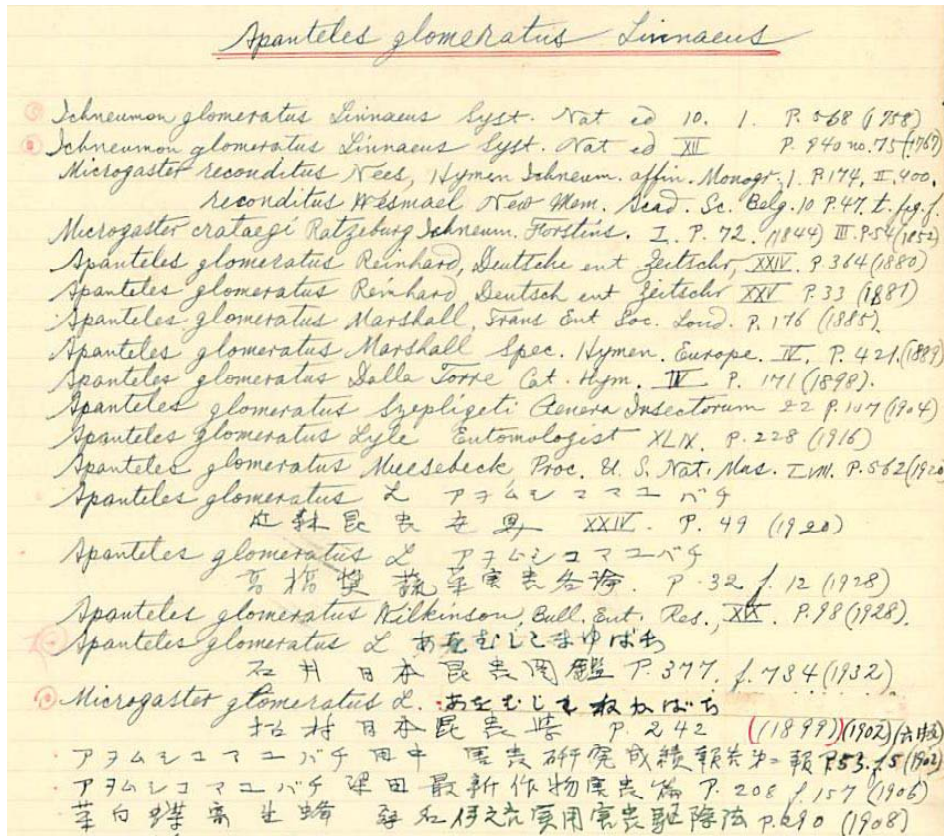 Apanteles glomeratus Linnaeus
Ichneumon glomeratus Linnaeus Syst. Nat ed 10. 1. P. 568 (1758)
Ichneumon glomeratus Linnaeus Syst. Nat ed XII P. 940 no. 75 (1767)
Microgaster reconditus Nees, Hymen Ichneum. affin. Monogr. 1. P. 174, II. 400.
reconditus Wesmael Nouv Mem. Acad. Sc. Belg. 10 P. 47. t. fig. f.
Microgaster crataegi Ratzeburg Ichneum. Forstins. I. P. 72. (1844) III. P. 54 (1852)
Apanteles glomeratus Reinhard, Deutsche ent Zeitschr, XXIV. P. 364 (1880)
Apanteles glomeratus Reinhard, Deutsch ent Zeitschr XXV P. 33 (1881)
Apanteles glomeratus Marshall, Trans Ent Soc. Lond. P. 176 (1885).
Apanteles glomeratus Marshall Spec. Hymen. Europe. IV. P. 421. (1889)
Apanteles glomeratus Dalla Torre Cat. Hym. IV P. 171 (1898).
Apanteles glomeratus Szepligeti Genera Insectorum 22 P. 107 (1904)
Apanteles glomeratus Lyle Entomologist XLIX. P. 228 (1916)
Apanteles glomeratus Muesebeck Proc. U. S. Nat. Mus. P. 562 (1920
Apanteles glomeratus L アヲムシコマユバチ
昆虫 XXIV. P. 49 (1920)
Apanteles glomeratus L アヲムシコマユバチ
高橋奨 蔬菜害虫各論. P. 32 f. 12 (1928)
Apanteles glomeratus Wilkinson, Bull. Ent. Res., XIX. P. 98 (1928).
Apanteles glomeratus L あをむしこまゆばち
石井 日本昆虫図鑑 P. 377. f. 734 (1932)
Microgaster glomeratus L. あをむし ばち
松村 日本昆虫学 P. 242 ((1899)) (1902) (六版)
アヲムシコマユバチ 田中 害虫研究成績報告第二報 P. 53. f. 5 (1902)
アヲムシコマユバチ 梁田 最新作物害虫篇 P. 208 f. 157 (1906)
菜白蝶寄生蜂 実用害虫駆除法 P. 290 (1908)